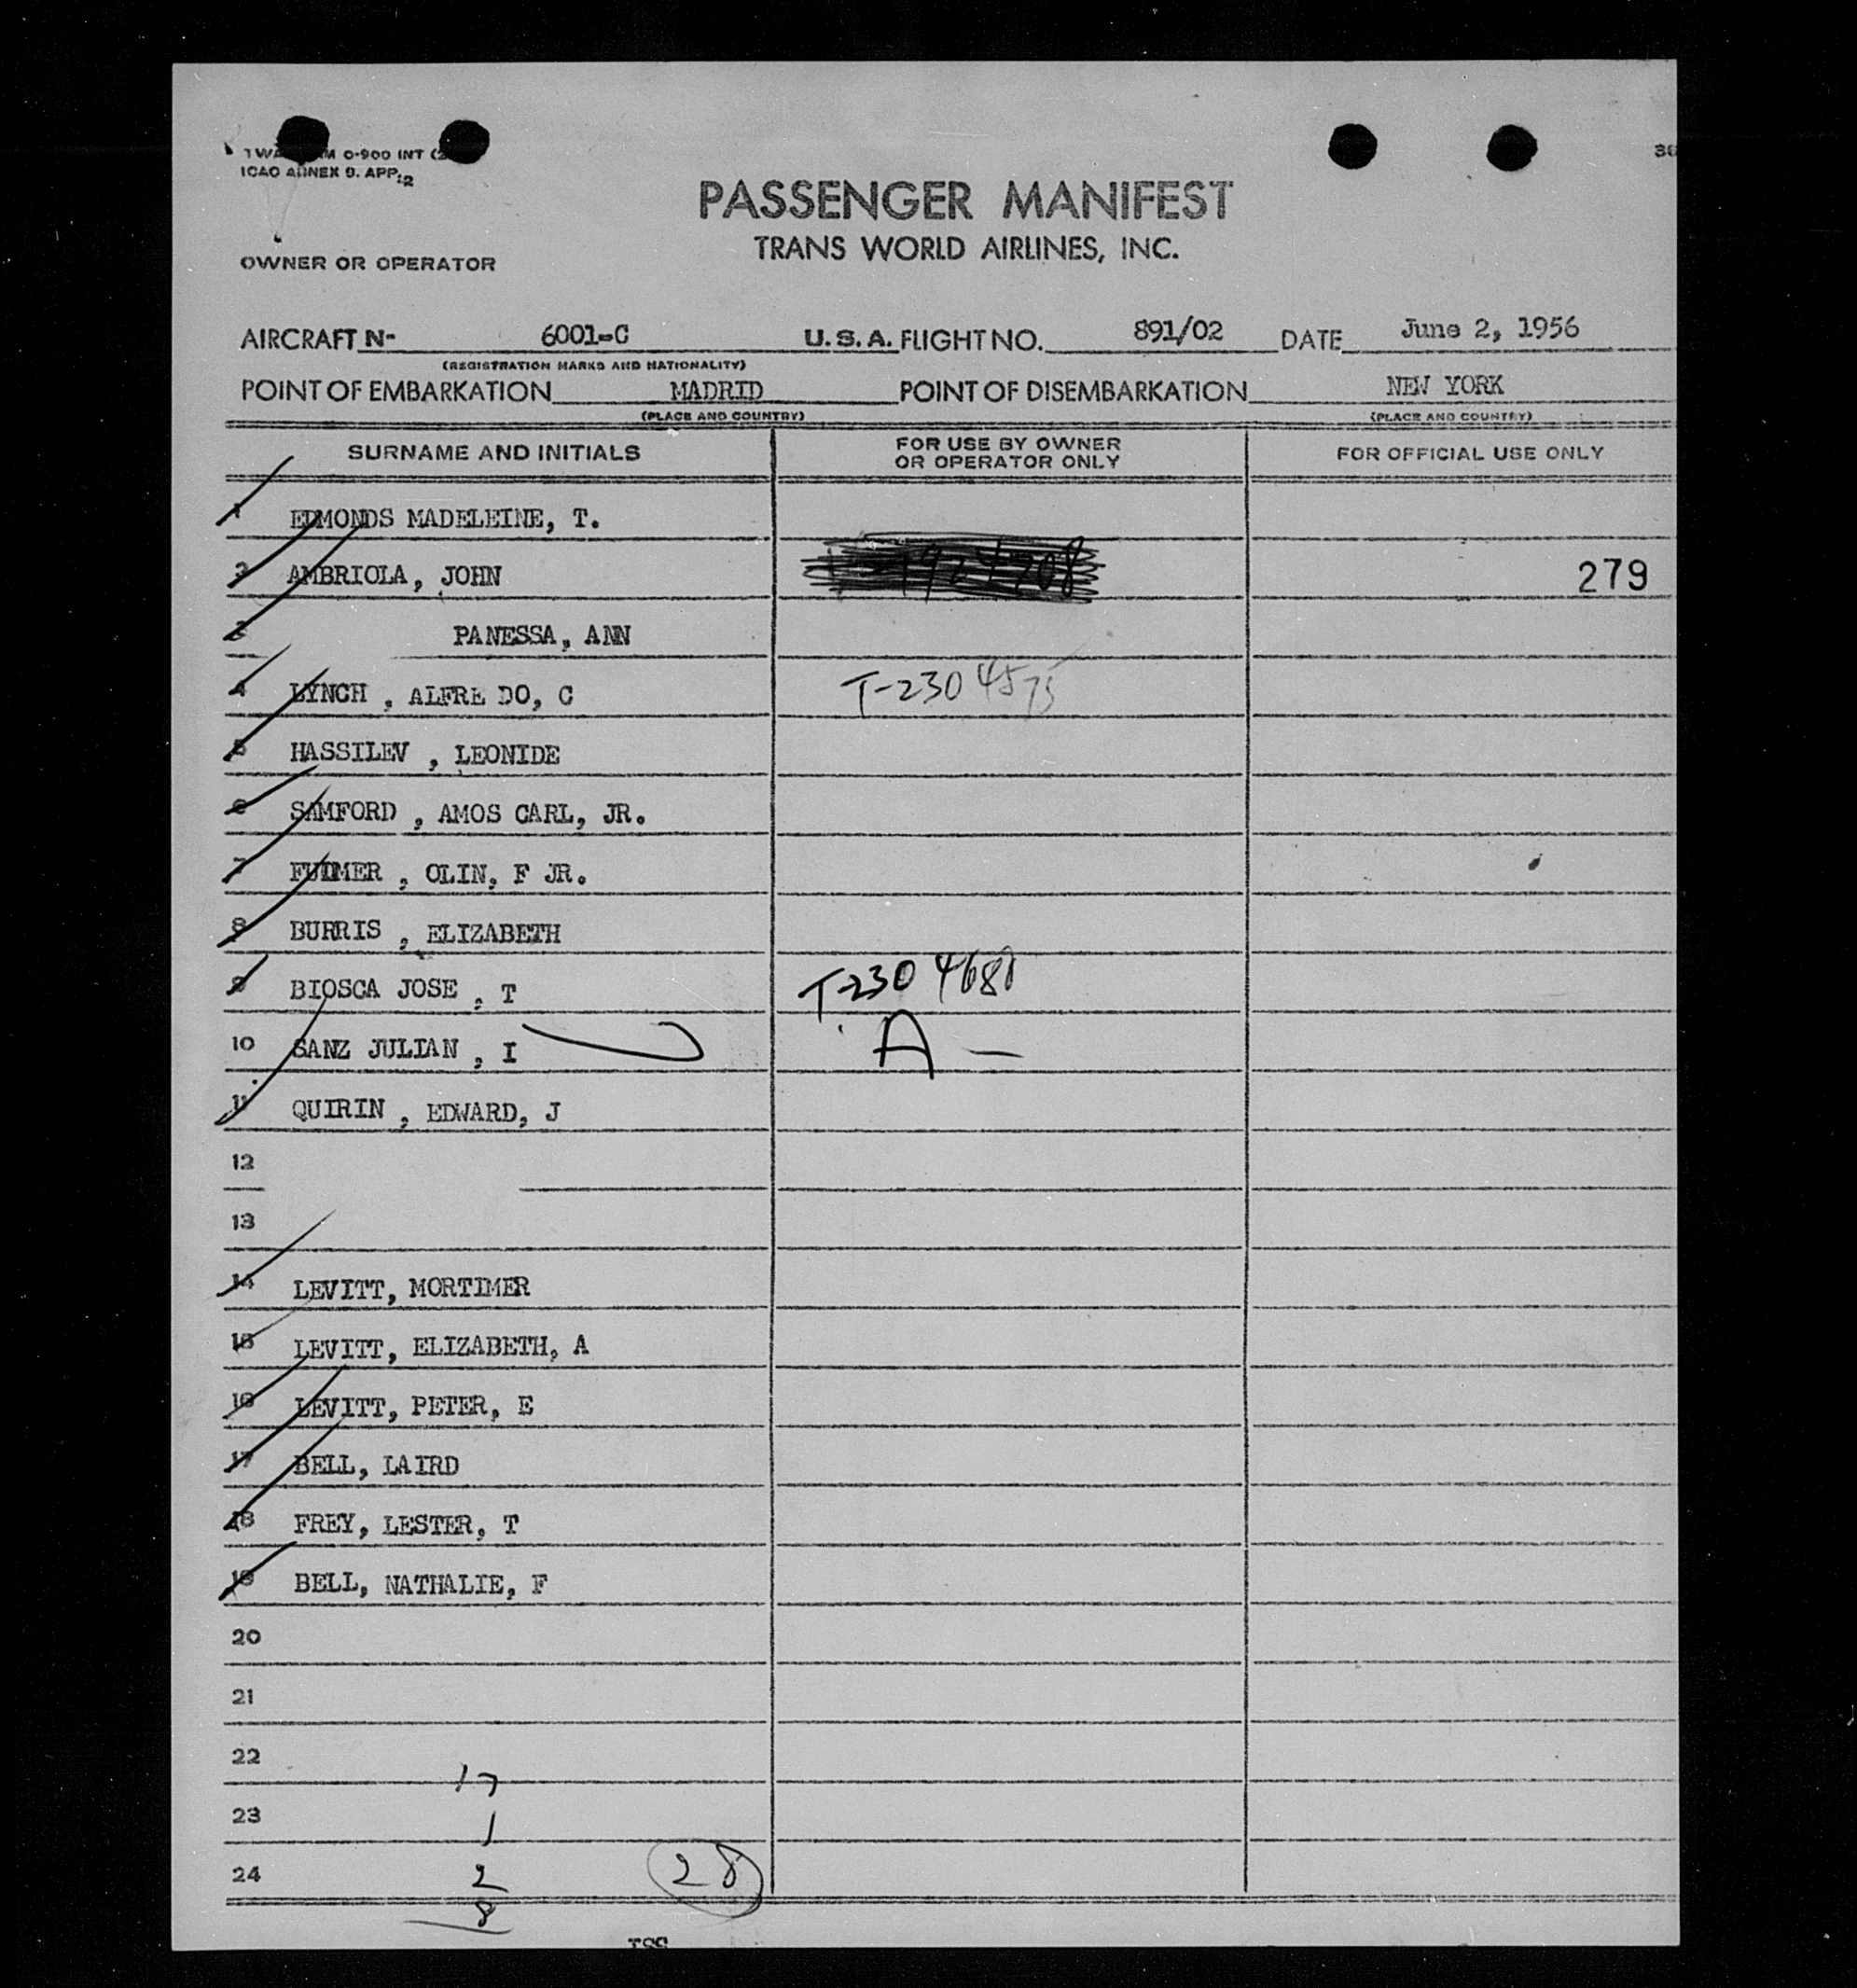 0-900 INT
ICAO ANNEX 9. APP. 2
PASSENGER MANIFEST
TRANS WORLD AIRLINES, INC.
OWNER OR OPERATOR
AIRCRAFT N- 6001-C U.S.A. FLIGHT NO. 891/02 DATE June 2, 1956
(REGISTRATION MARKS AND NATIONALITY)
POINT OF EMBARKATION MADRID POINT OF DISEMBARKATION NEW YORK
(PLACE AND COUNTRY) (PLACE AND COUNTRY)
SURNAME AND INITIALS FOR USE BY OWNER OR OPERATOR ONLY FOR OFFICIAL USE ONLY
1 EDMONDS MADELEINE, T.
2 AMBRIOLA, JOHN 279
3 PANESSA, ANN
4 LYNCH , ALFRE DO, C T-230 4575
5 HASSILEV , LEONIDE
6 SAMFORD , AMOS CARL, JR.
7 FULMER , OLIN, F JR.
8 BURRIS , ELIZABETH
9 BIOSCA JOSE , T T-230
10 SANZ JULIAN , I A —
11 QUIRIN , EDWARD, J
12
13
14 LEVITT, MORTIMER
15 LEVITT, ELIZABETH, A
16 LEVITT, PETER, E
17 BELL, LAIRD
18 FREY, LESTER, T
19 BELL, NATHALIE, F
20
21
22
17
23
1
24 2 28
8